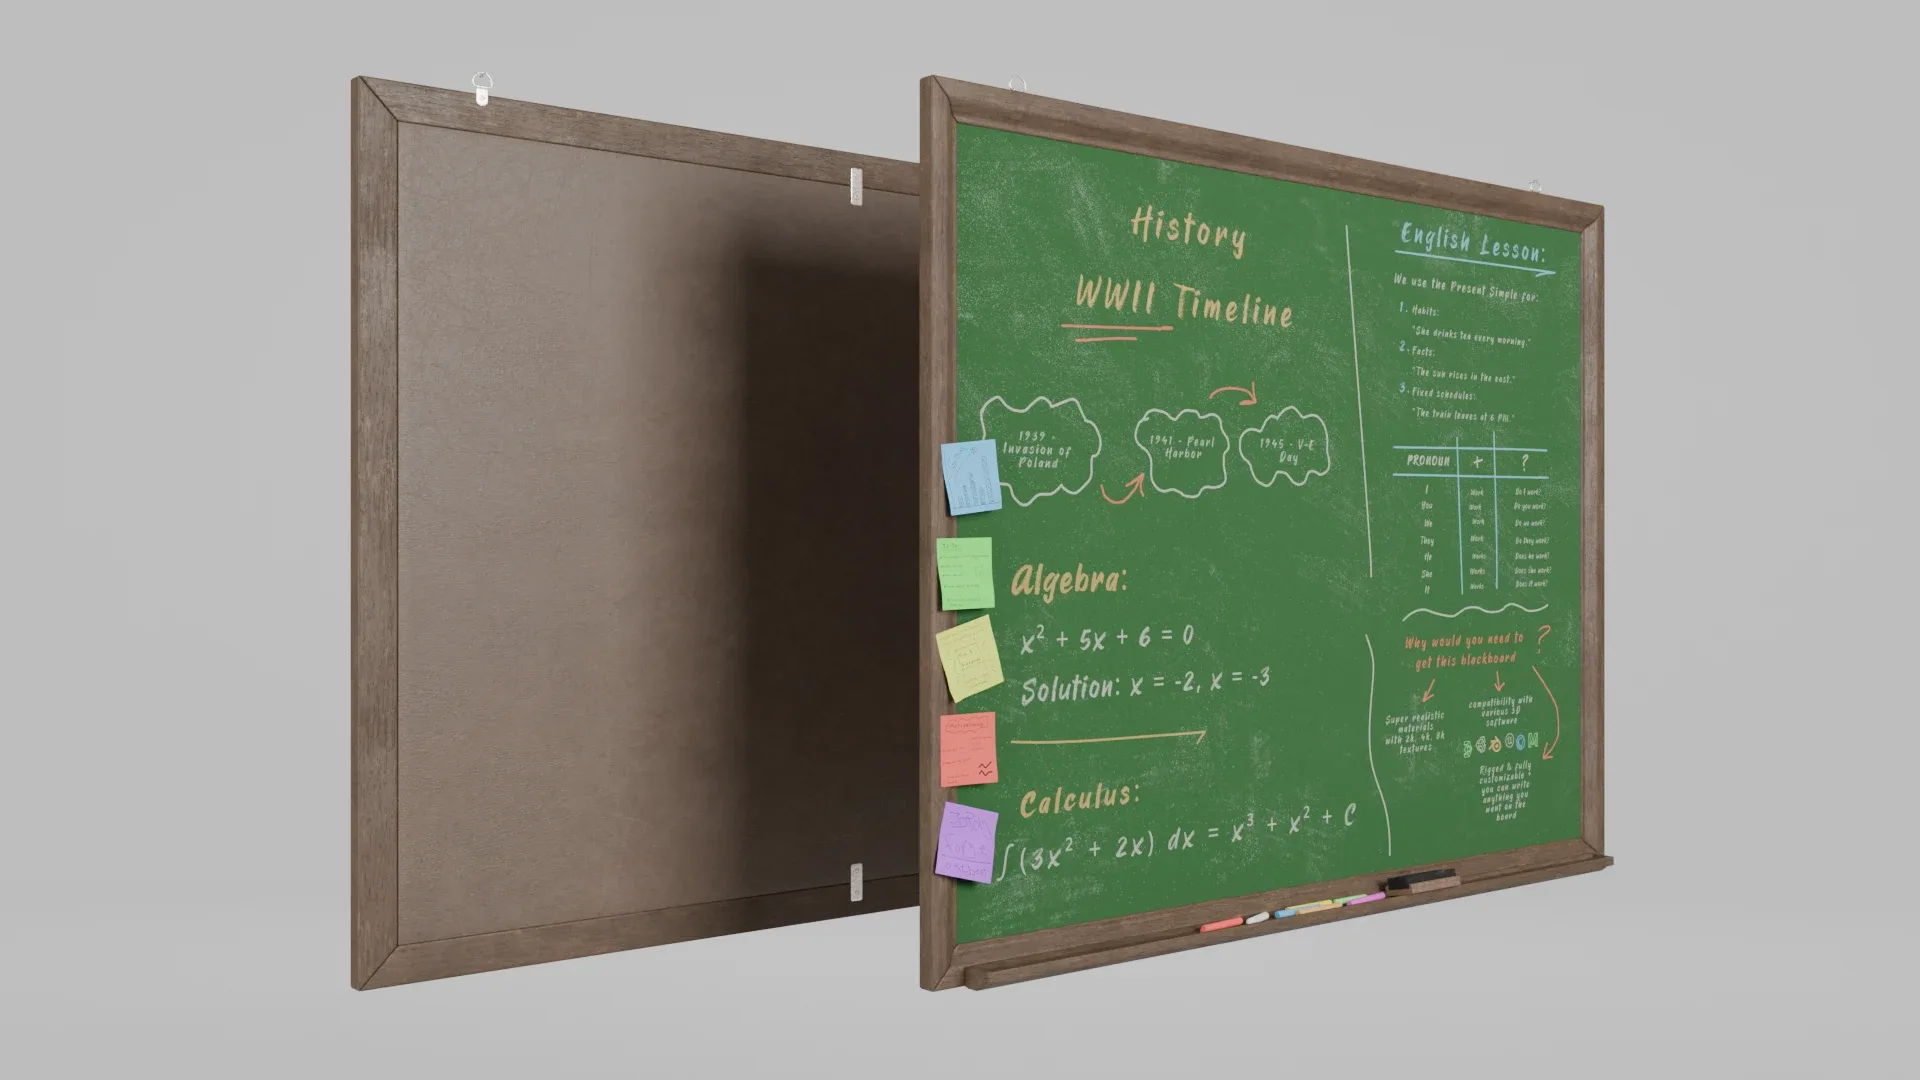 History
WWII Timeline
1939 -
Invasion of
Poland
1941 - Pearl
Harbor
1945 - V-E
Day
Algebra:
x² + 5x + 6 = 0
Solution: x = -2, x = -3
Calculus:
∫(3x² + 2x) dx = x³ + x² + C
English Lesson:
We use the Present Simple for:
1. Habits:
"She drinks tea every morning."
2. Facts:
"The sun rises in the east."
3. Fixed schedules:
"The train leaves at 6 PM."
PRONOUN + ?
I Work Do I work?
You Work Do you work?
We Work Do we work?
They Work Do they work?
He Works Does he work?
She Works Does she work?
It Works Does it work?
Why would you need to
get this blackboard ?
Super realistic
materials
with 2k, 4k, 8k
textures
compatibility with
various 3D
software
Rigged & fully
customizable
you can write
anything you
want on the
board